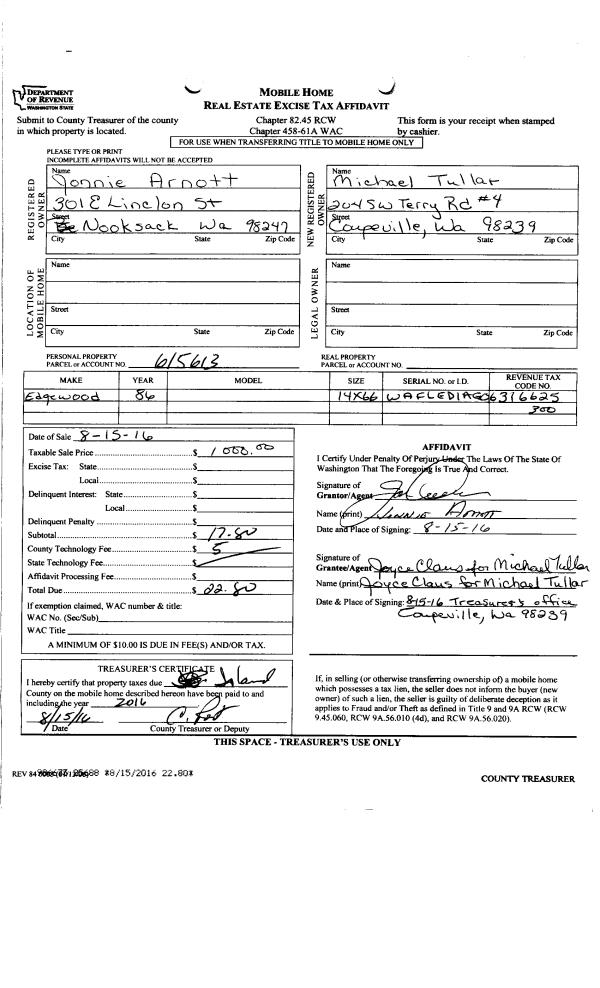 DEPARTMENT
OF REVENUE
WASHINGTON STATE
MOBILE HOME
REAL ESTATE EXCISE TAX AFFIDAVIT
Submit to County Treasurer of the county
in which property is located.
Chapter 82.45 RCW
Chapter 458-61A WAC
This form is your receipt when stamped
by cashier.
FOR USE WHEN TRANSFERRING TITLE TO MOBILE HOME ONLY
PLEASE TYPE OR PRINT
INCOMPLETE AFFIDAVITS WILL NOT BE ACCEPTED
REGISTERED OWNER
Name
Jonnie Arnott
301 E Linclon St
Street
Nooksack Wa 98247
City State Zip Code
NEW REGISTERED OWNER
Name
Michael Tullar
204 SW Terry Rd #4
Street
Coupeville, Wa 98239
City State Zip Code
LOCATION OF MOBILE HOME
Name
Street
City State Zip Code
LEGAL OWNER
Name
Street
City State Zip Code
PERSONAL PROPERTY
PARCEL or ACCOUNT NO. 615613
REAL PROPERTY
PARCEL or ACCOUNT NO.
MAKE YEAR MODEL SIZE SERIAL NO. or I.D. REVENUE TAX CODE NO.
Edgewood 86 14X66 WAFLEDIAG06316625
300
Date of Sale 8-15-16
Taxable Sale Price $ 1000.00
Excise Tax: State $
Local $
Delinquent Interest: State $
Local $
Delinquent Penalty $
Subtotal $ 17.80
County Technology Fee $ 5
State Technology Fee $
Affidavit Processing Fee $
Total Due $ 22.80
If exemption claimed, WAC number & title:
WAC No. (Sec/Sub)
WAC Title
A MINIMUM OF $10.00 IS DUE IN FEE(S) AND/OR TAX.
AFFIDAVIT
I Certify Under Penalty Of Perjury Under The Laws Of The State Of
Washington That The Foregoing Is True And Correct.
Signature of
Grantor/Agent
Name (print) Jonnie Arnott
Date and Place of Signing: 8-15-16
Signature of
Grantee/Agent Joyce Claus for Michael Tullar
Name (print) Joyce Claus for Michael Tullar
Date & Place of Signing: 8-15-16 Treasurer's office
Coupeville, Wa 98239
TREASURER'S CERTIFICATE
I hereby certify that property taxes due Island
County on the mobile home described hereon have been paid to and
including the year 2016
8/15/16
Date County Treasurer or Deputy
If, in selling (or otherwise transferring ownership of) a mobile home
which possesses a tax lien, the seller does not inform the buyer (new
owner) of such a lien, the seller is guilty of deliberate deception as it
applies to Fraud and/or Theft as defined in Title 9 and 9A RCW (RCW
9.45.060, RCW 9A.56.010 (4d), and RCW 9A.56.020).
THIS SPACE - TREASURER'S USE ONLY
REV 84 *8/15/2016 22.80*
COUNTY TREASURER